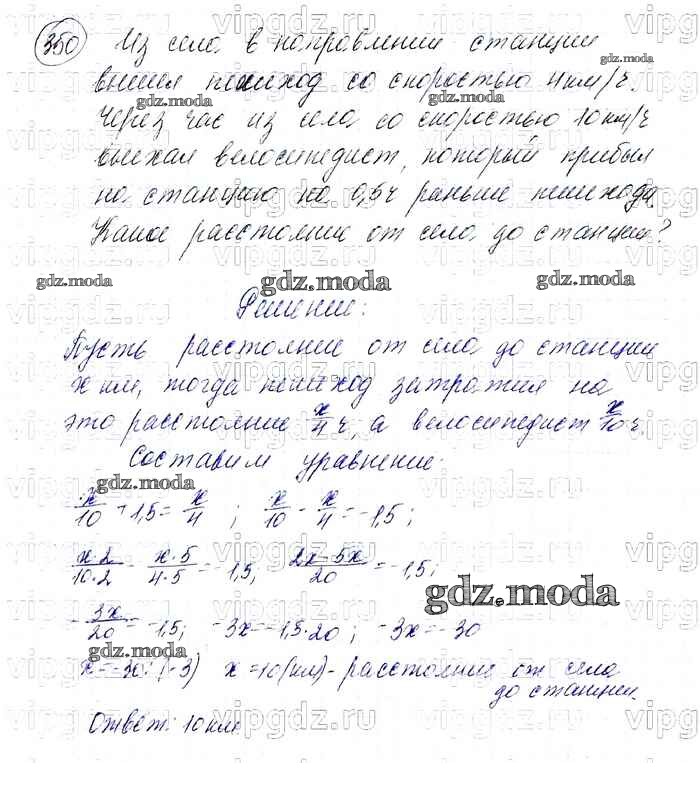 350 Из села в направлении станции
вышел пешеход со скоростью 4км/ч.
Через час из села со скоростью 10км/ч
выехал велосипедист, который прибыл
на станцию на 0,5ч раньше пешехода.
Какое расстояние от села до станции?
Решение:
Пусть расстояние от села до станции
x км, тогда пешеход затратил на
это расстояние x/4 ч, а велосипедист x/10 ч.
Составим уравнение:
x/10 + 1,5 = x/4 ; x/10 - x/4 = -1,5 ;
x·2/10·2 - x·5/4·5 = -1,5; 2x-5x/20 = -1,5;
-3x/20 = -1,5; -3x=-1,5·20; -3x=-30
x=-30:(-3) x=10(км)-расстояние от села
до станции.
Ответ: 10км
gdz.moda
vipgdz.ru